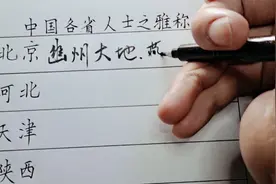 中国各省人士之雅称
北京 幽州大地.燕
河北
天津
陕西